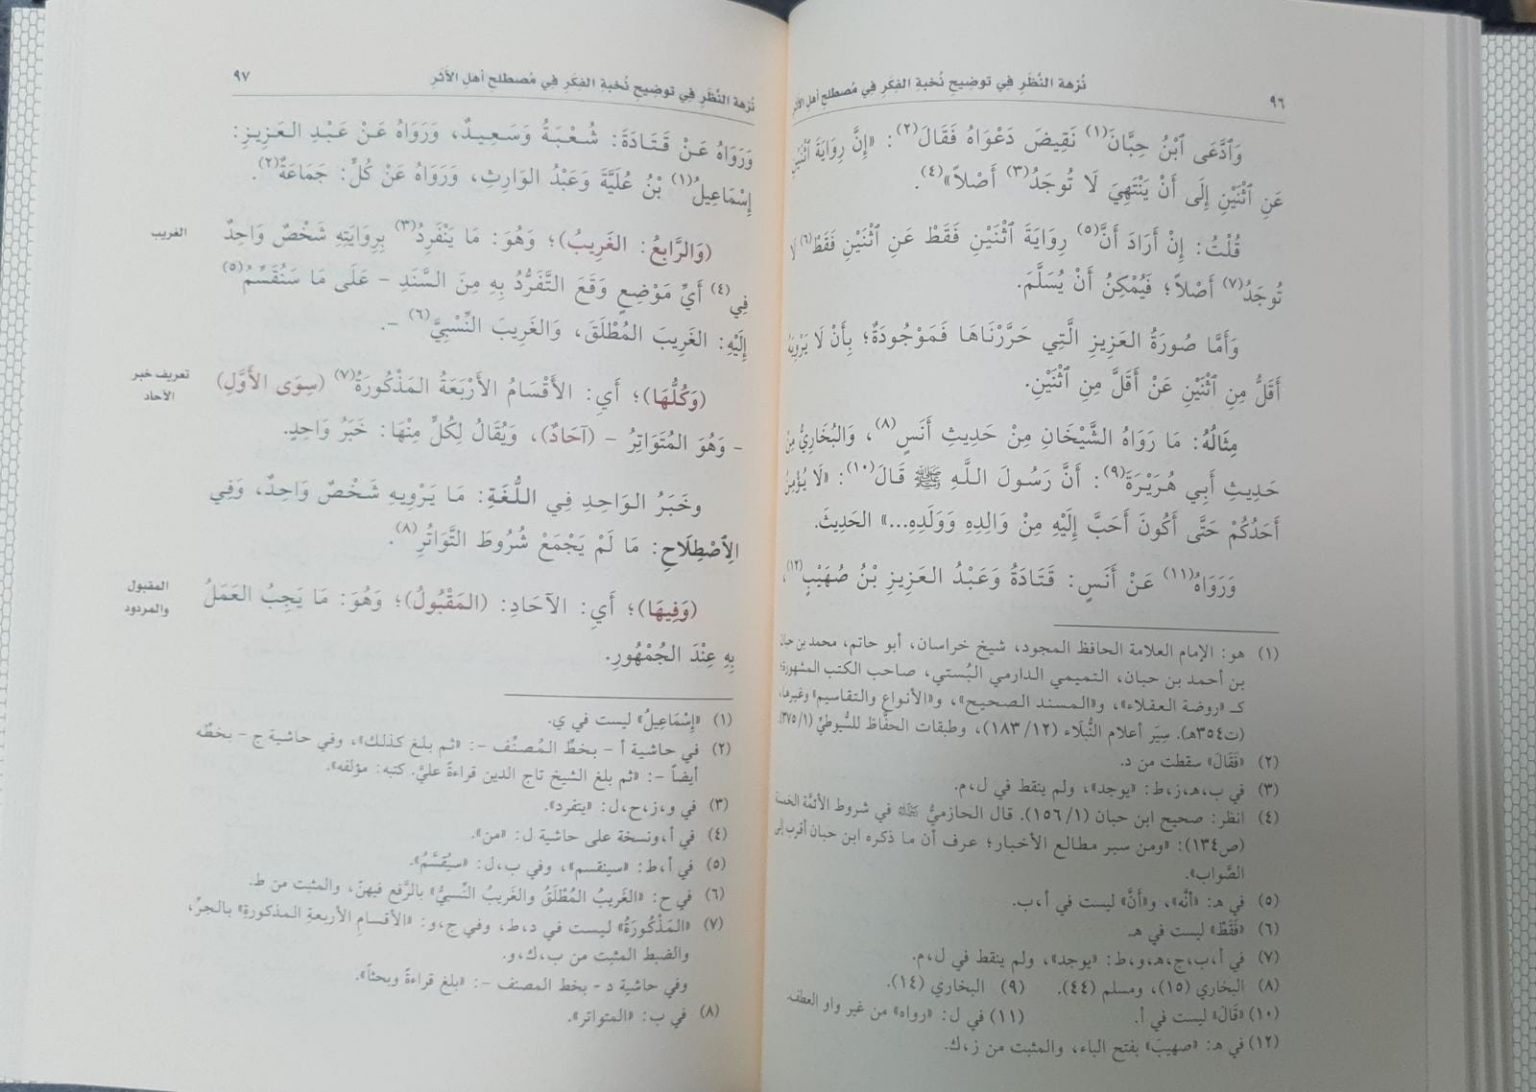 ٩٦
نُزهة النَّظَرِ فِي توضيحِ نُخبةِ الفِكَرِ فِي مُصطلحِ أهلِ الأثَرِ
وَٱدَّعَى ٱبْنُ حِبَّانَ(١) نَقِيضَ دَعْوَاهُ فَقَالَ(٢): «إِنَّ رِوَايَةَ ٱثْنَيْنِ
عَنِ ٱثْنَيْنِ إِلَى أَنْ يَنْتَهِيَ لَا تُوجَدُ(٣) أَصْلاً»(٤).
قُلْتُ: إِنْ أَرَادَ أَنَّ(٥) رِوَايَةَ ٱثْنَيْنِ فَقَطْ عَنِ ٱثْنَيْنِ فَقَطْ(٦) لَا
تُوجَدُ(٧) أَصْلاً؛ فَيُمْكِنُ أَنْ يُسَلَّمَ.
وَأَمَّا صُورَةُ العَزِيزِ الَّتِي حَرَّرْنَاهَا فَمَوْجُودَةٌ؛ بِأَنْ لَا يَرْوِيَهُ
أَقَلُّ مِنِ ٱثْنَيْنِ عَنْ أَقَلَّ مِنِ ٱثْنَيْنِ.
مِثَالُهُ: مَا رَوَاهُ الشَّيْخَانِ مِنْ حَدِيثِ أَنَسٍ(٨)، وَالبُخَارِيُّ مِنْ
حَدِيثِ أَبِي هُرَيْرَةَ(٩): أَنَّ رَسُولَ اللَّهِ ﷺ قَالَ(١٠): «لَا يُؤْمِنُ
أَحَدُكُمْ حَتَّى أَكُونَ أَحَبَّ إِلَيْهِ مِنْ وَالِدِهِ وَوَلَدِهِ...» الحَدِيثَ.
وَرَوَاهُ(١١) عَنْ أَنَسٍ: قَتَادَةُ وَعَبْدُ العَزِيزِ بْنُ صُهَيْبٍ(١٢)،
(١) هو: الإمام العلامة الحافظ المجود، شيخ خراسان، أبو حاتم، محمد بن حبان
بن أحمد بن حبان، التميمي الدارمي البُستي، صاحب الكتب المشهورة؛
كـ «روضة العقلاء»، و«المسند الصحيح»، و«الأنواع والتقاسيم» وغيرها،
(ت٣٥٤هـ). سِيَر أعلام النُّبلَاء (١٢/ ١٨٣)، وطبقات الحفَّاظ للسُّيوطيِّ (١/ ٣٧٥).
(٢) «فَقَالَ» سقطت من د.
(٣) في ب،هـ،ز،ط: «يوجد»، ولم ينقط في ل،م.
(٤) انظر: صحيح ابن حبان (١/ ١٥٦). قال الحازميُّ في شروط الأئمَّة الخمسة
(ص١٣٤): «ومن سبر مطالع الأخبار؛ عرف أن ما ذكره ابن حبان أقرب إلى
الصَّواب».
(٥) في هـ: «أنَّه»، و«أَنَّ» ليست في أ،ب.
(٦) «فَقَطْ» ليست في هـ.
(٧) في أ،ب،ج،هـ،و،ط: «يوجد»، ولم ينقط في ل،م.
(٨) البخاري (١٥)، ومسلم (٤٤). (٩) البخاري (١٤).
(١٠) «قَالَ» ليست في أ. (١١) في ل: «رواه» من غير واو العطف.
(١٢) في هـ: «صهيبَ» بفتح الباء، والمثبت من ز،ك.
نُزهة النَّظَرِ فِي توضيحِ نُخبةِ الفِكَرِ فِي مُصطلحِ أهلِ الأثَرِ
٩٧
وَرَوَاهُ عَنْ قَتَادَةَ: شُعْبَةُ وَسَعِيدٌ، وَرَوَاهُ عَنْ عَبْدِ العَزِيزِ:
إِسْمَاعِيلُ(١) بْنُ عُلَيَّةَ وَعَبْدُ الوَارِثِ، وَرَوَاهُ عَنْ كُلٍّ: جَمَاعَةٌ(٢).
(وَالرَّابِعُ: الغَرِيبُ)؛ وَهُوَ: مَا يَنْفَرِدُ(٣) بِرِوَايَتِهِ شَخْصٌ وَاحِدٌ
الغريب
فِي(٤) أَيِّ مَوْضِعٍ وَقَعَ التَّفَرُّدُ بِهِ مِنَ السَّنَدِ - عَلَى مَا سَنُقَسِّمُ(٥)
إِلَيْهِ: الغَرِيبَ المُطْلَقَ، وَالغَرِيبَ النِّسْبِيَّ(٦) -.
(وَكُلُّهَا)؛ أَيِ: الأَقْسَامُ الأَرْبَعَةُ المَذْكُورَةُ(٧) (سِوَى الأَوَّلِ)
تعريف خبر
الآحاد
- وَهُوَ المُتَوَاتِرُ - (آحَادٌ)، وَيُقَالُ لِكُلٍّ مِنْهَا: خَبَرُ وَاحِدٍ.
وخَبَرُ الوَاحِدِ فِي اللُّغَةِ: مَا يَرْوِيهِ شَخْصٌ وَاحِدٌ، وَفِي
الِٱصْطِلَاحِ: مَا لَمْ يَجْمَعْ شُرُوطَ التَّوَاتُرِ(٨).
(وَفِيهَا)؛ أَيِ: الآحَادِ: (المَقْبُولُ)؛ وَهُوَ: مَا يَجِبُ العَمَلُ
المقبول
والمردود
بِهِ عِنْدَ الجُمْهُورِ.
(١) «إِسْمَاعِيلُ» ليست في ي.
(٢) في حاشية أ - بخطِّ المُصنِّف -: «ثم بلغ كذلك»، وفي حاشية ج - بخطِّه
أيضاً -: «ثم بلغ الشيخ تاج الدين قراءةً عليَّ. كتبه: مؤلفه».
(٣) في و،ز،ح،ل: «يتفرد».
(٤) في أ،ونسخة على حاشية ل: «من».
(٥) في أ،ط: «سينقسم»، وفي ب،ل: «سيُقسَّمُ».
(٦) في ح: «الغَرِيبُ المُطْلَقُ والغَرِيبُ النِّسبيُّ» بالرَّفع فيهنّ، والمثبت من ط.
(٧) «المَذْكُورَةُ» ليست في د،ط، وفي ج،و: «الأقسامِ الأربعةِ المذكورةِ» بالجرِّ،
والضبط المثبت من ب،ك،و.
وفي حاشية د - بخط المصنف -: «بلغ قراءةً وبحثاً».
(٨) في ب: «المتواتر».